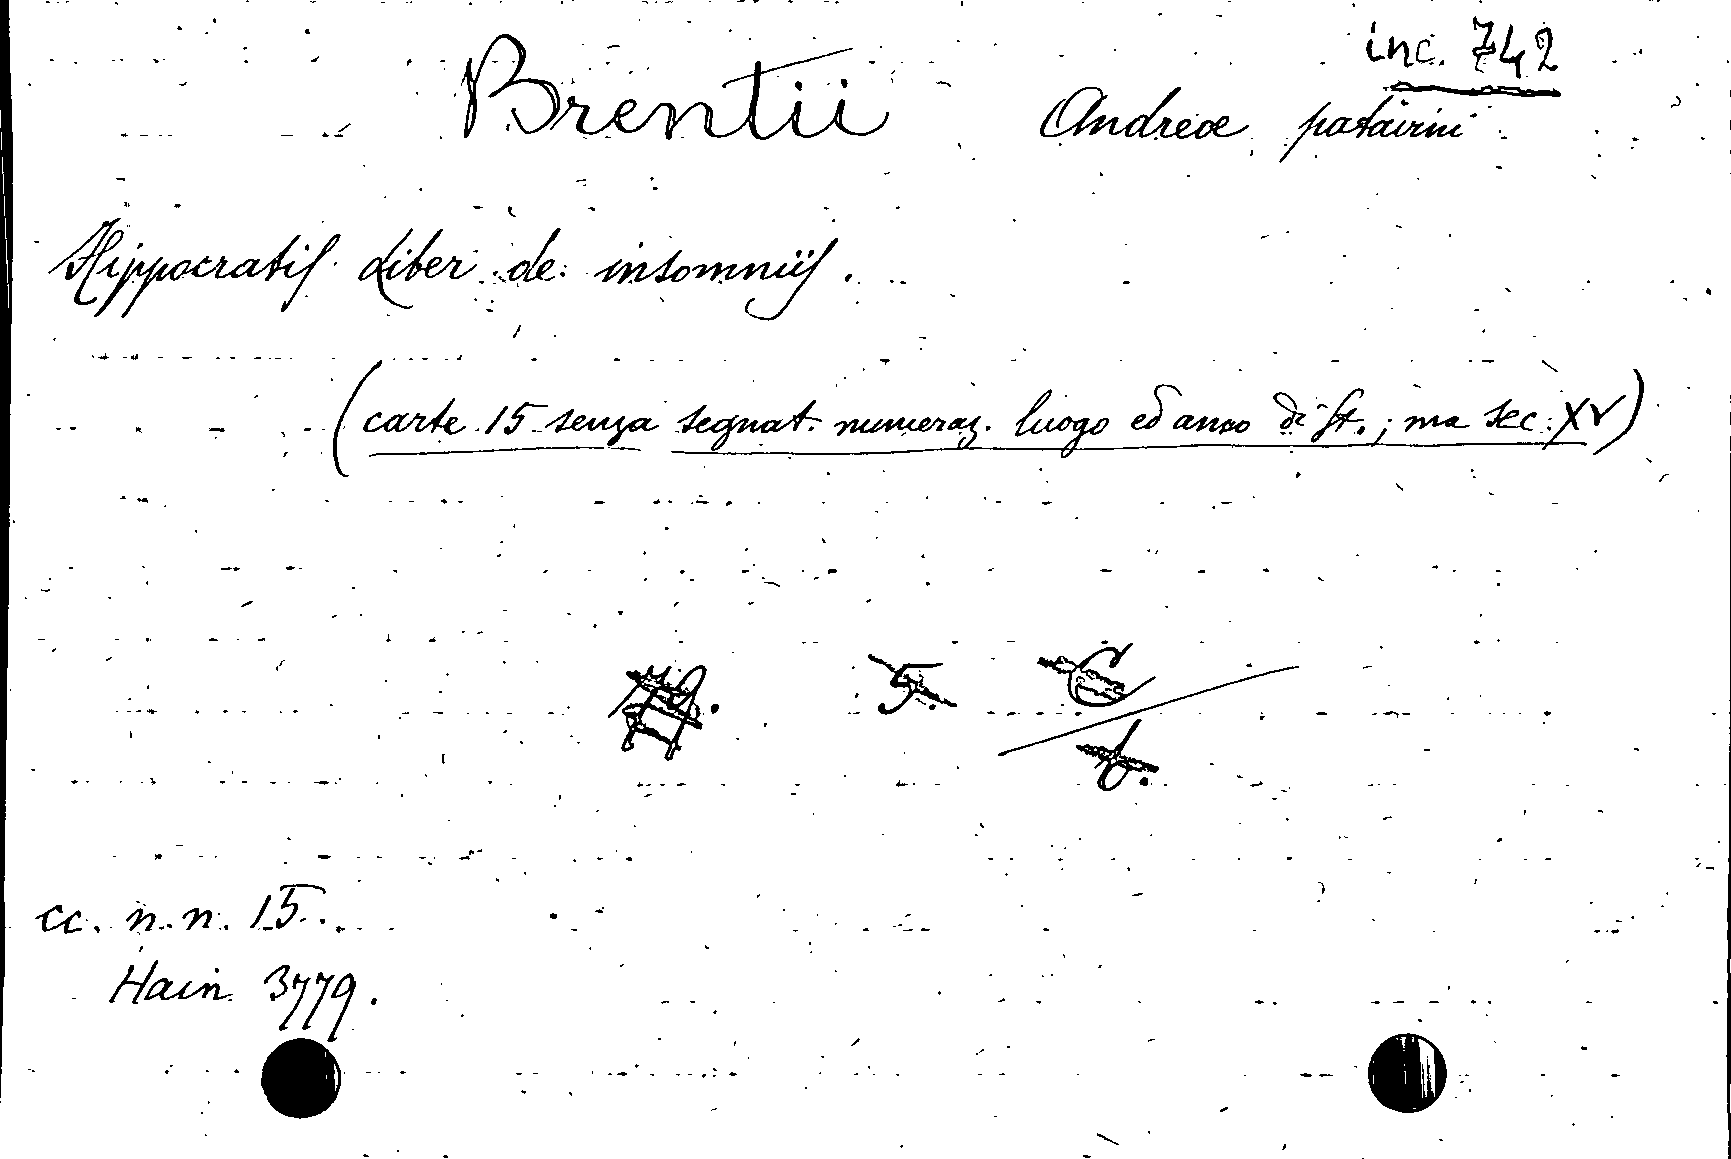 inc. 742
Brentii Andreæ patavini
Hippocratis Liber de insomniis.
(carte 15 senza segnat. numeraz. luogo ed anno di st.; ma sec. XV)
5. C
b.
cc. n.n. 15.
Hain 3779.